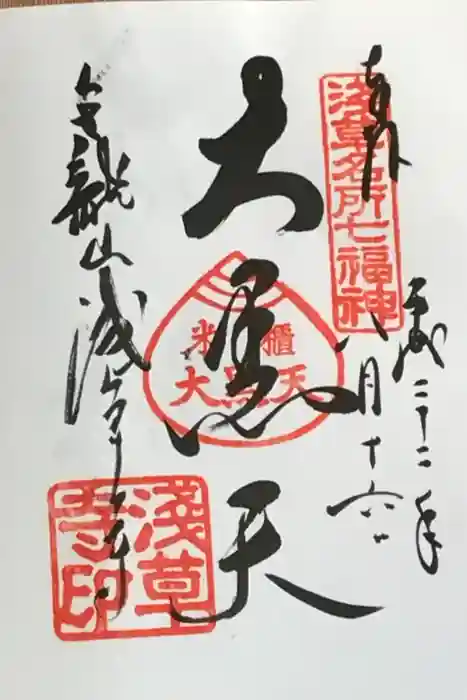 奉拝
浅草名所七福神
平成二十二年
八月十六日
大黒天
米櫃
大黒天
金龍山浅草寺
浅草
寺印